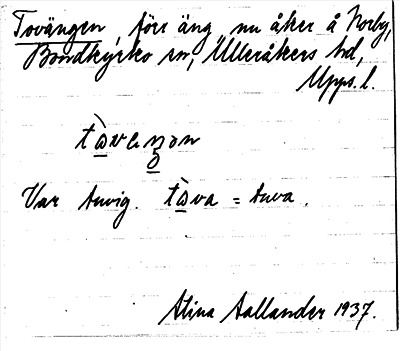 Tovängen, förr äng, nu åker å Norby,
Bondkyrko sn, Ulleråkers hd,
Upps. l.
Var tuvig. tòva = tuva.
Stina Aallander 1937.